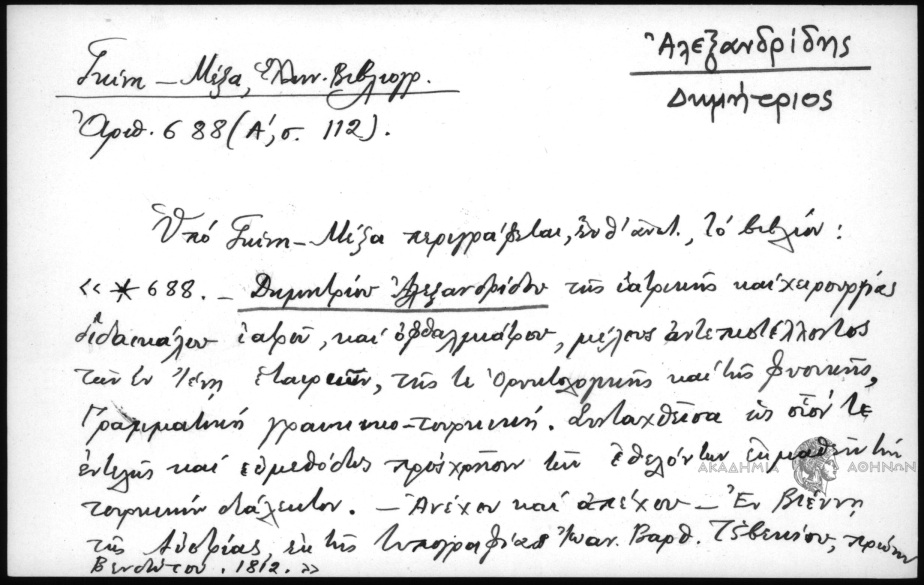 Ἀλεξανδρίδης
Δημήτριος
Γκίνη – Μέξα, Ἑλλην. Βιβλιογρ.
Ἀριθ. 688 (Α΄, σ. 112).
Ὑπό Γκίνη – Μέξα περιγράφεται, ἔνθ' ἀνωτ., τό βιβλίον :
«* 688. – Δημητρίου Ἀλεξανδρίδου τῆς ἰατρικῆς καί χειρουργίας
διδασκάλου ἰατροῦ, καί ὀφθαλμιάτρου, μέλους ἀντεπιστέλλοντος
τῶν ἐν Ἰένῃ ἑταιρειῶν, τῆς τε Ὀρυκτολογικῆς καί τῆς Φυσικῆς,
Γραμματική γραικικο-τουρκική. Συνταχθεῖσα ὡς οἷόν τε
ἐντελῶς καί εὐμεθόδως πρός χρῆσιν τῶν ἐθελόντων ἐκμαθεῖν τήν
ΑΚΑΔΗΜΙΑ ΑΘΗΝΩΝ
τουρκικήν διάλεκτον. – Ἀνέχου καί ἀπέχου – Ἐν Βιέννῃ
τῆς Αὐστρίας, ἐκ τῆς τυπογραφίας Ἰωαν. Βαρθ. Τζβεκίου, πρώην
Βενδώτου. 1812.»